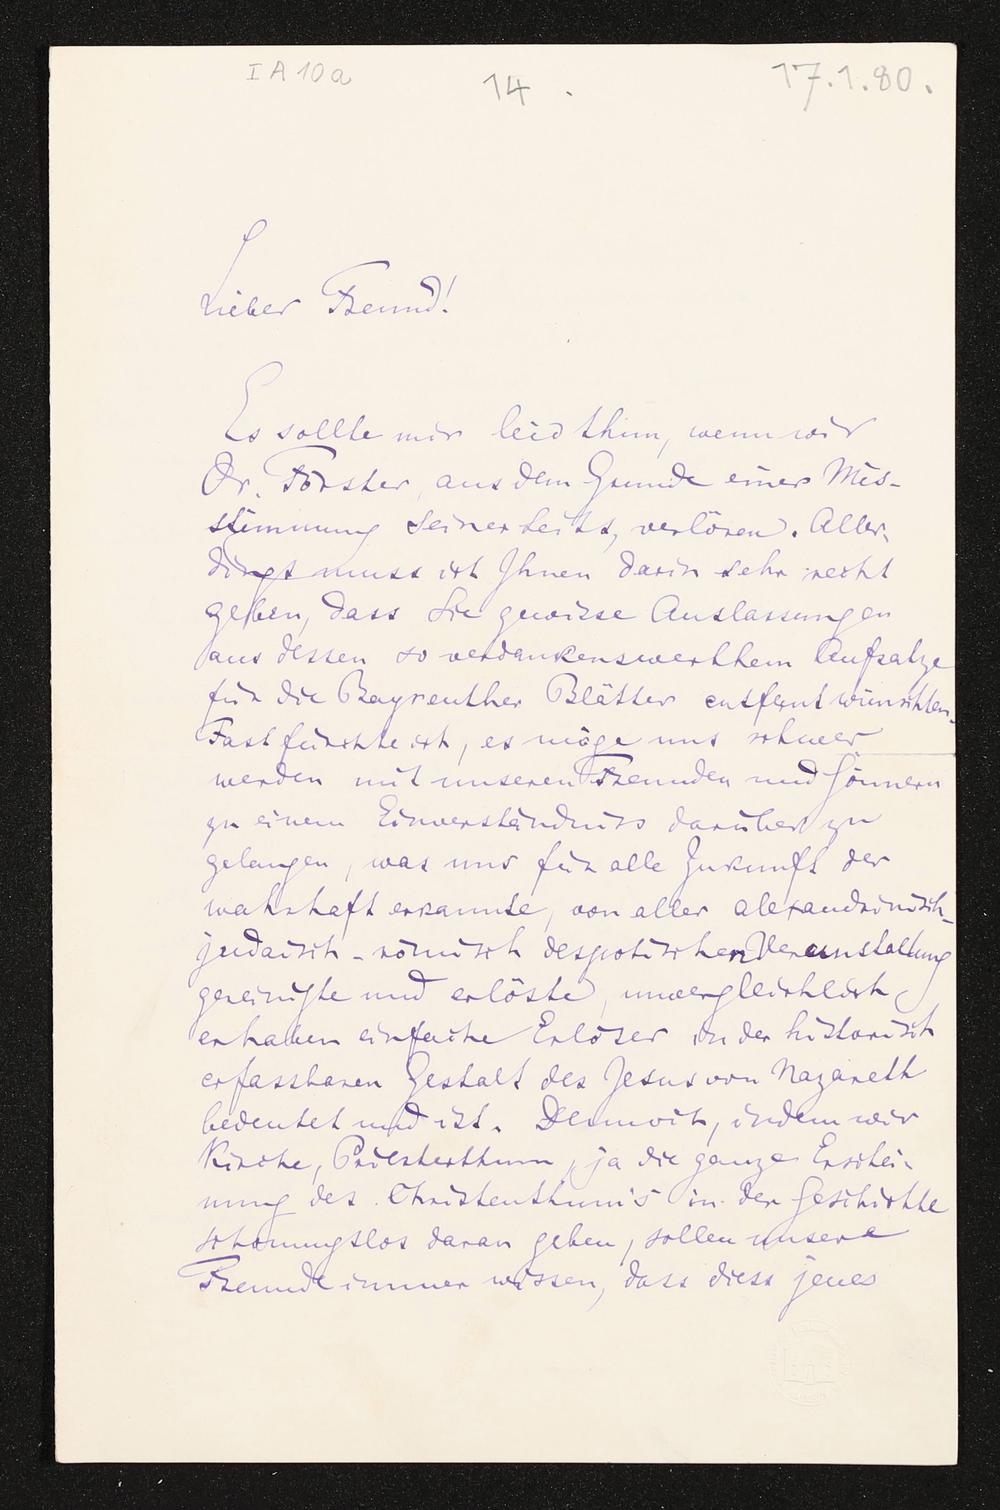 I A 10 a
14.
17.1.80.
Lieber Freund!
Es sollte mir leid thun, wenn wir
Dr. Förster, aus dem Grunde einer Mis-
stimmung seinerseits, verlören. Aller-
dings muss ich Ihnen darin sehr recht
geben, dass Sie gewisse Auslassungen
aus dessen so verdankenswerthem Aufsatze
für die Bayreuther Blätter entfernt wünschten.
Fast fürchte ich, es möge uns schwer
werden mit unseren Freunden und Gönnern
zu einem Einverständniss darüber zu
gelangen, was uns für alle Zukunft der
wahrhaft erkannte, von aller alexandrinisch-
judaisch-römisch despotischen Verunstaltung
gereinigte und erlöste, unvergleichlich
erhaben einfache Erlöser in der historisch
erfassbaren Gestalt des Jesus von Nazareth
bedeutet und ist. Dennoch, indem wir
Kirche, Priesterthum, ja die ganze Erschei-
nung des Christenthum's in der Geschichte
schonungslos daran geben, sollen unsere
Freunde immer wissen, dass diess jenes